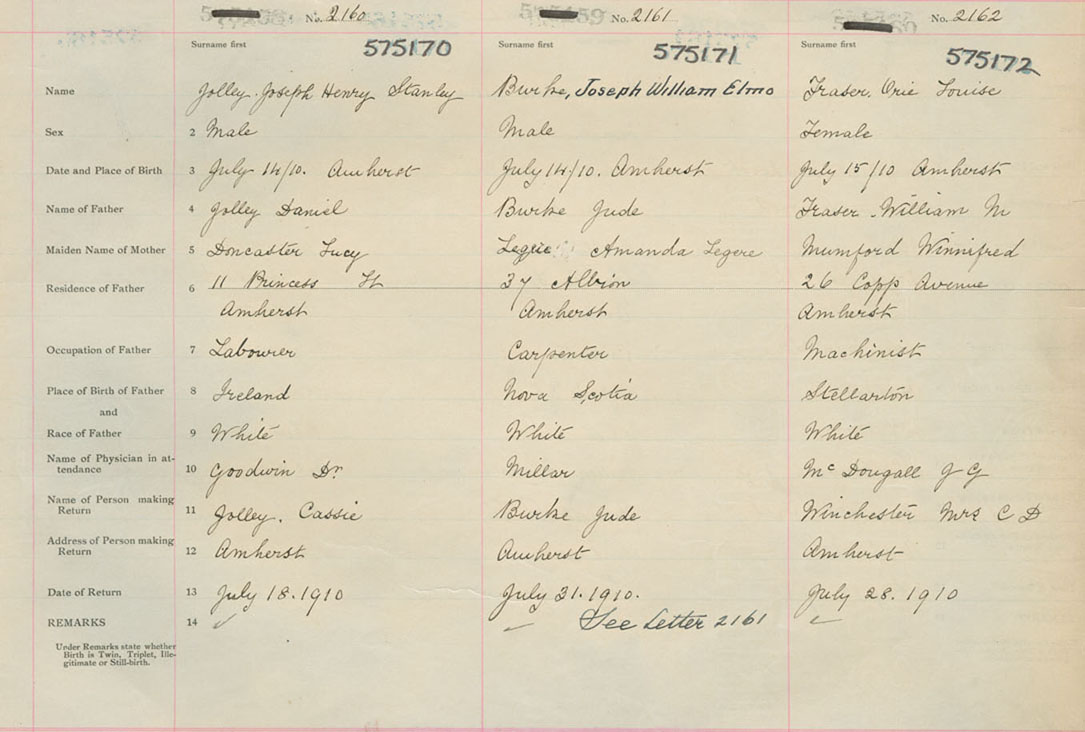 No. 2160 No. 2161 No. 2162
Surname first 575170 Surname first 575171 Surname first 575172
Name Jolley. Joseph Henry Stanley Burke, Joseph William Elmo Fraser. Orie Louise
Sex 2 Male Male Female
Date and Place of Birth 3 July 14/10. Amherst July 14/10. Amherst July 15/10 Amherst
Name of Father 4 Jolley Daniel Burke Jude Fraser. William M
Maiden Name of Mother 5 Doncaster Lucy Legere Amanda Legere Mumford Winnifred
Residence of Father 6 11 Princess St 37 Albion 26 Copp Avenue
Amherst Amherst Amherst
Occupation of Father 7 Labourer Carpenter Machinist
Place of Birth of Father 8 Ireland Nova Scotia Stellarton
and
Race of Father 9 White White White
Name of Physician in at-
tendance 10 Goodwin Dr. Millar Mc Dougall J G
Name of Person making
Return 11 Jolley. Cassie Burke Jude Winchester Mrs C D
Address of Person making
Return 12 Amherst Amherst Amherst
Date of Return 13 July 18. 1910 July 31. 1910. July 28. 1910
REMARKS 14 See Letter 2161
Under Remarks state whether
Birth is Twin, Triplet, Ille-
gitimate or Still-birth.